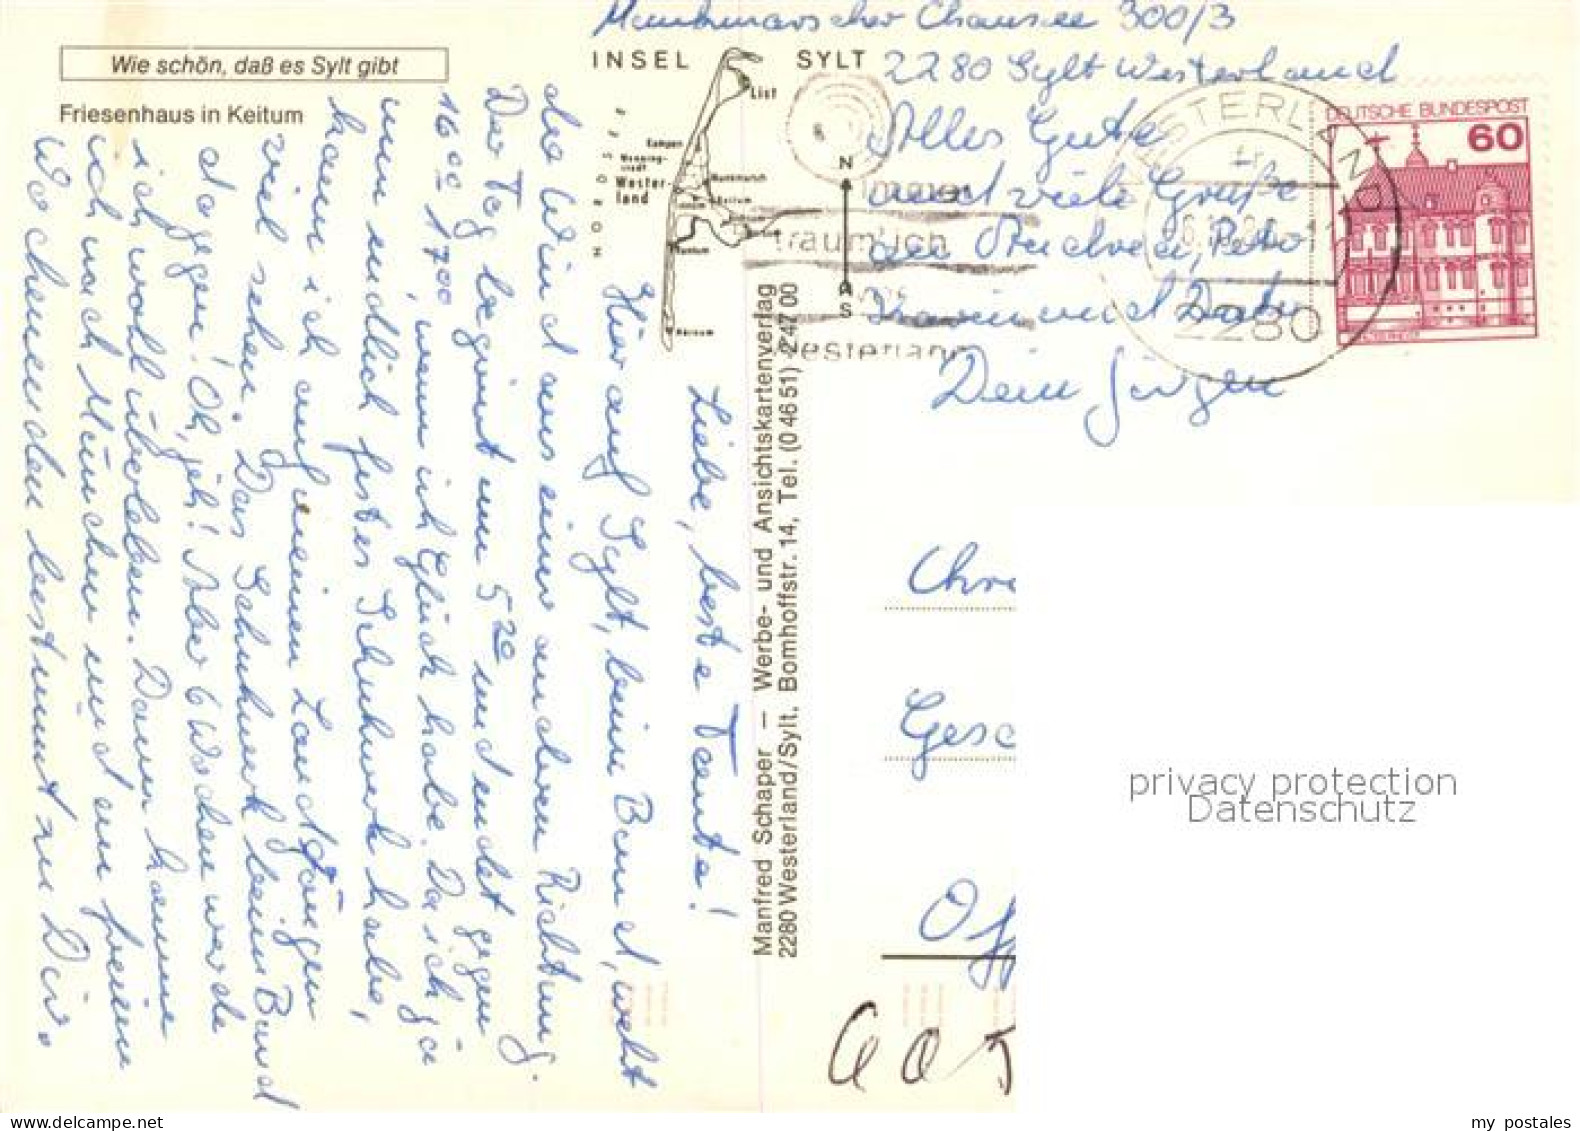 Munkmarscher Chaussee 300/3
2280 Sylt Westerland
Wie schön, daß es Sylt gibt
Friesenhaus in Keitum
INSEL SYLT
List
Kampen
Wenning-
stedt
Wester-
land
Munkmarsch
Keitum
Rantum
Hörnum
NORDSEE
N
S
Alles Gute
und viele Grüße
an Andrea, Peter
Karin und
Dein Jürgen
WESTERLAND
2280
traumlich
Westerland
DEUTSCHE BUNDESPOST
60
Liebe, beste Tante!
Hier auf Sylt, beim Bund, weht
der Wind aus einer anderen Richtung.
Der Tag beginnt um 5 20 und endet gegen
16 00 1700, wenn ich Glück habe. Da ich ja
nun endlich festes Schuhwerk habe,
kann ich auf meinen Landgängen
viel sehen. Das Schuhwerk beim Bund
dagegen! Oh, jeh! Aber 6 Wochen werde
ich wohl überleben. Dann komme
ich nach München und am freien
Wochenenden bestimmt zu Dir.
Manfred Schaper — Werbe- und Ansichtskartenverlag
2280 Westerland/Sylt, Bomhoffstr. 14, Tel. (0 46 51) 2 47 00
Chr
Gesc
Off
605
privacy protection
Datenschutz
my postales